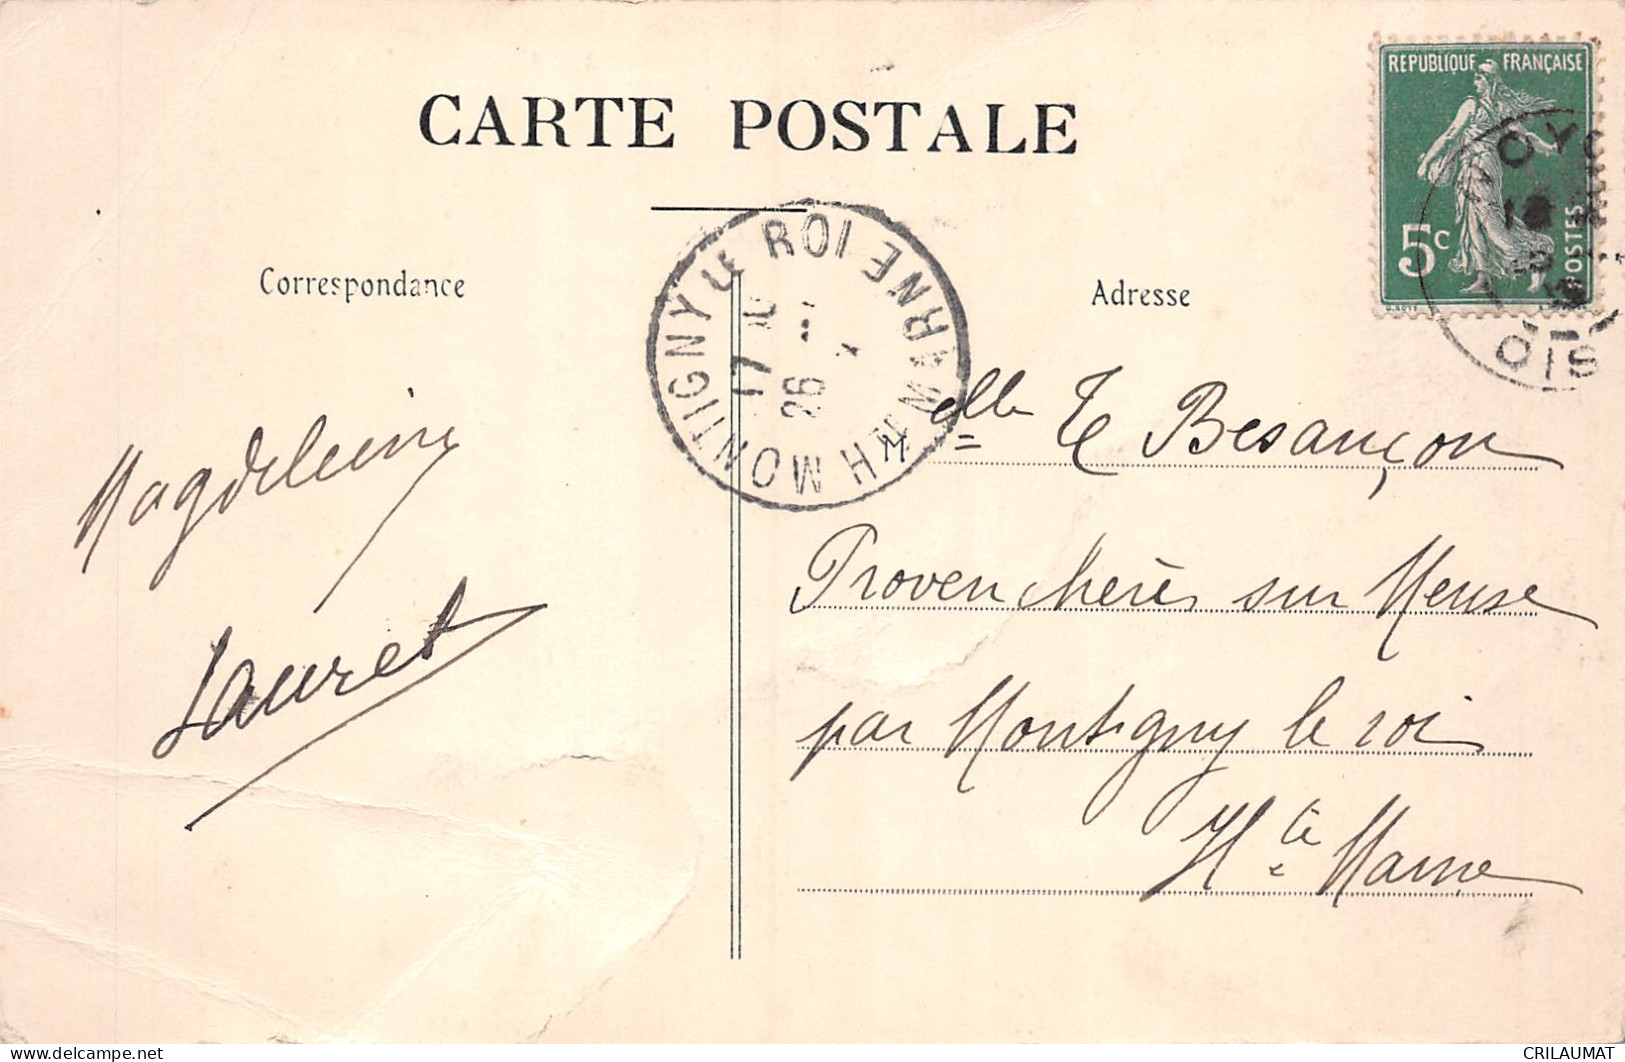 CARTE POSTALE
REPUBLIQUE FRANÇAISE
5c
POSTES
OISE
MONTIGNY LE ROI
HTE MARNE
17
26
Correspondance
Adresse
Magdeleine
Lauret
Melle Besançon
Provenchères sur Meuse
par Montigny le roi
Hte Marne
delcampe.net
CRILAUMAT